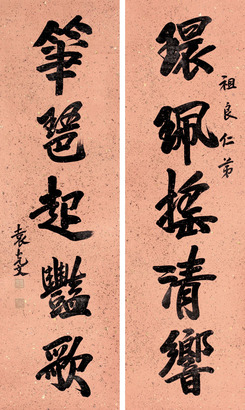 環珮搖清響
祖良仁弟
箏琶起豔歌
袁克文